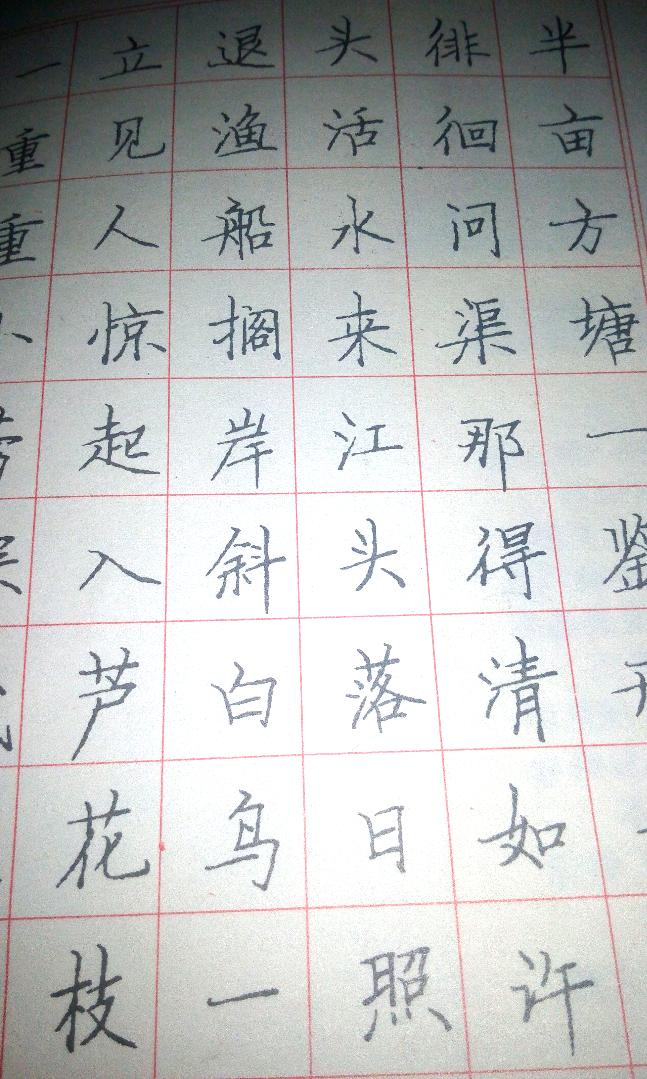 半亩方塘一鉴开
徘徊问渠那得清如许
头活水来江头落日照
退渔船搁岸斜白鸟一
立见人惊起入芦花枝
一重重